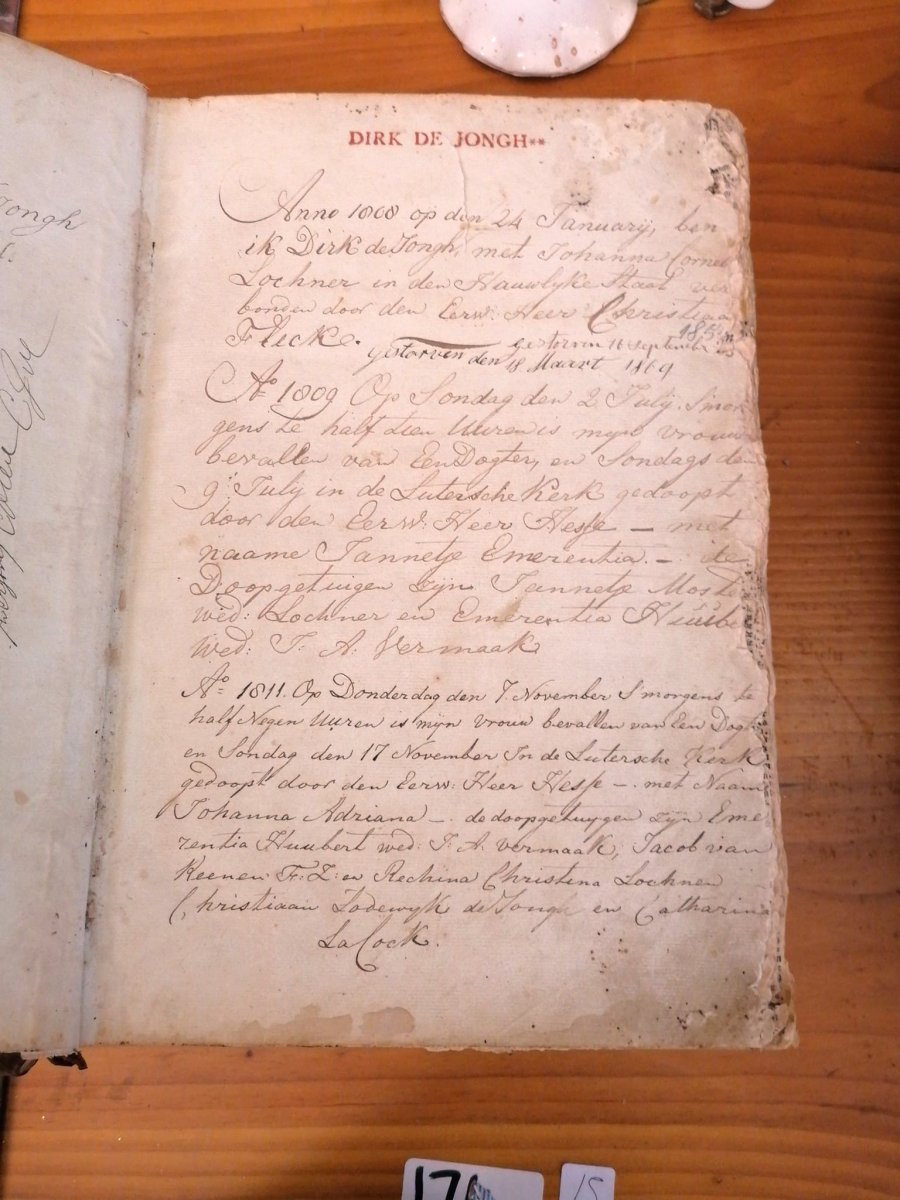 DIRK DE JONGH**
Anno 1808 op den 24 Januarij, ben
ik Dirk de Jongh, met Johanna Corne
Lochner in den Hauwlyke Staat ver
bonden door den Eerw: Heer Christiaa
Flecke.
gestorven 16 September
gestorven den 18 Maart 1869
Ao 1809 Op Sondag den 2 Julij Smor
gens te half tien Uuren is myn vrouw
bevallen van Een Dogter, en Sondags de
9 Julij in de Lutersche Kerk gedoopt
door den Eerw: Heer Hesse — met
naame Jannetje Emerentia. — de
Doopgetuigen zijn Jannetje Mos
wed: Lochner en Emerentia Huube
wed: J: A: Vermaak
Ao 1811. Op Donderdag den 7 November Smorgens te
half Negen Uuren is mijn vrouw bevallen van Een Dogt
en Sondag den 17 November In de Lutersche Kerk
gedoopt door den Eerw: Heer Hesse —. met Naam
Johanna Adriana —. de doopgetuygen zijn Eme
rentia Huubert wed: J: A: Vermaak, Jacob van
Reenen F: Z: en Rechina Christina Lochner
Christiaan Lodewyk de Jongh en Catharina
La Cock.
Jongh
15